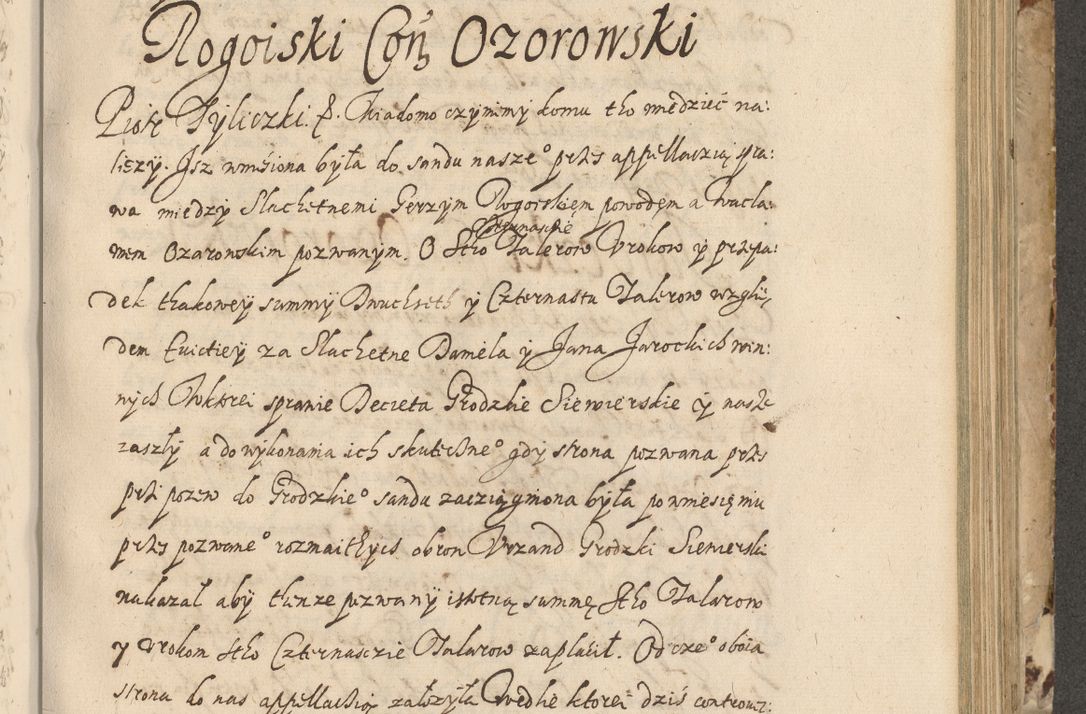 Rogoiski Con Ozorowski
Piotr Tyliczki. &. Wiadomo czynimy komu tho wiedziec na:
liezy. Jsz wniesiona była do sandu nasze° przes appellaczią spra:
wa miedzy Slachetnemi Gerzym Rogoiskięm powodęm a Wacła:
wem Ozarowskim pozwanym. O Stho Czternascie Talerow Vrokow y przepa:
dek thakowey summy Dwuchseth y Czternastu Talerow wzglę:
dem Euictiey za Slachetne Daniela y Jana Jarockich win:
nych Wktorei sprawie Decreta Grodzkie Siewierskie y nasze
zaszły a do wykonania ich skuteczne° gdy strona pozwana przes
przi pozew do Grodzkie° sandu zacziągniona była po wniesięniu
przes pozwane° rozmaithych obron Vrzand Grodzki Siewierski
nakazał aby thenze pozwany istotną summę Stho Talarow
y vrokow stho Czternasczie Talarow zapłacił. Od cze° oboia
strona do nas appellaczią załozyła Wedle ktorei dziś controuer: